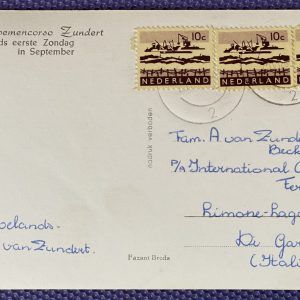 oemencorso Zundert
ds eerste Zondag
in September
10c
NEDERLAND
10c
NEDERLAND
2
2
nadruk verboden
Fam. A van Zunde
Beck
P/A International C
Fer
Limone-
Di Gar
(Itali
oelands
van Zundert.
Pazant Breda